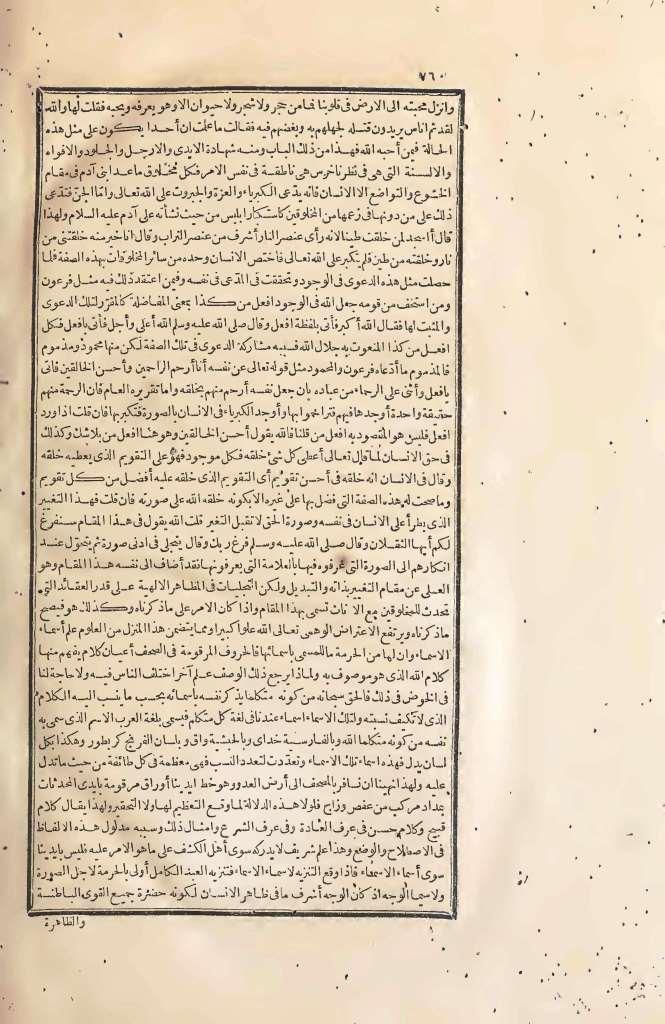 ٧٦٠
وأنزل محبته الى الارض فى قلوبنا فما من حجر ولا شجر ولا حيوان الا وهو يعرفه ويحبه فقلت لها والله
لقد تم اناس يريدون قتله لجهلهم به وبغضهم فيه فقالت ما علمت ان أحدا يكون على مثل هذه
الحالة فمن أحبه الله فهذا من ذلك الباب ومنه شهادة الايدى والارجل والجلود والافواه
والالسنة التى هى فى نظرنا خرس هى ناطقة فى نفس الامر فكل مخلوق ما عدا بنى آدم فى مقام
الخشوع والتواضع الا الانسان فانه يدّعى الكبرياء والعزة والجبروت على الله تعالى وامّا الجنّ فتدّعى
ذلك على من دونها فى زعمها من المخلوقين كاستكبار ابليس من حيث نشأته على آدم عليه السلام ولهذا
قال أأسجد لمن خلقت طينا لانه رأى عنصر النار أشرف من عنصر التراب وقال انا خير منه خلقتنى من
نار وخلقته من طين فلم يتكبر على الله تعالى فاختص الانسان وحده من سائر المخلوقات بهذه الصفة فلما
حصلت مثل هذه الدعوى فى الوجود وتحققت فى المدّعى فى نفسه وفيمن اعتقد ذلك فيه مثل فرعون
ومن استخف من قومه جعل الله فى الوجود افعل من كذا بمعنى المفاضلة كالمقرر لتلك الدعوى
والمثبت لها فقال الله أكبر فأتى بلفظة افعل وقال صلى الله عليه وسلم الله أعلى وأجل فأتى بافعل فكل
افعل من كذا المنعوت به جلال الله فسببه مشاركة الدعوى فى تلك الصفة لكن منها محمود ومذموم
فالمذموم ما ادّعاه فرعون والمحمود مثل قوله تعالى عن نفسه أنا أرحم الراحمين وأحسن الخالقين فاتى
بافعل وأثنى على الرحماء من عباده بان جعل نفسه أرحم منهم بخلقه واما تقريره العام فان الرحمة منهم
حقيقة واحدة أوجدها فيهم فتراحموا بها وأوجد الكبرياء فى الانسان بالصورة فتكبر بها فان قلت اذا ورد
افعل فليس هو المقصود به افعل من قلنا فالله يقول أحسن الخالقين وهو هنا افعل من بلا شك وكذلك
فى حق الانسان لما قال تعالى أعطى كل شئ خلقه فكل موجود فهو على التقويم الذى يعطيه خلقه
وقال فى الانسان انه خلقه فى أحسن تقويم أى التقويم الذى خلقه عليه أفضل من كل تقويم
وما صحت له هذه الصفة التى فضل بها على غيره الا بكونه خلقه الله على صورته فان قلت فهذا التغيير
الذى يطرأ على الانسان فى نفسه وصورة الحق لا تقبل التغير قلت الله يقول فى هذا المقام سنفرغ
لكم أيها الثقلان وقال صلى الله عليه وسلم فرغ ربك وقال يتجلى فى ادنى صورة ثم يتحوّل عند
انكارهم الى الصورة التى عرفوه فيها بالعلامة التى يعرفونها فقد أضاف الى نفسه هذا المقام وهو
العلىّ عن مقام التغيير بذاته والتبديل ولكن التجليات فى المظاهر الالهية على قدر العقائد التى
تحدث للمخلوقين مع الآنات تسمى بهذا المقام واذا كان الامر على ما ذكرناه وكذلك هو فيصح
ما ذكرناه ويرتفع الاعتراض الوهمى تعالى الله علوّا كبيرا ومما يتضمن هذا المنزل من العلوم علم أسماء
الاسماء وان لها من الحرمة ما للمسمى باسمائها فالحروف المرقومة فى الصحف أعيان كلام يفهم منها
كلام الله الذى هو موصوف به ولماذا يرجع ذلك الوصف علم آخر اختلف الناس فيه ولا حاجة لنا
فى الخوض فى ذلك فالحق سبحانه من كونه متكلما يذكر نفسه بأسمائه بحسب ما ينسب اليه الكلام
الذى لا تكيف نسبته ولتلك الاسماء اسماء عندنا فى لغة كل متكلم فيسمى بلغة العرب الاسم الذى سمى به
نفسه من كونه متكلما الله وبالفارسية خداى وبالحبشية واق وبلسان الفرنج كريطور وهكذا بكل
لسان يدل فهذه أسماء تلك الاسماء وتعدّدت لتعدد النسب فهى معظمة فى كل طائفة من حيث ما تدل
عليه ولهذا نهينا ان نسافر بالمصحف الى أرض العدو وهو خط ايدينا أوراق مرقومة بايدى المحدثات
بمداد مركب من عفص وزاج فلولا هذه الدلالة لما وقع التعظيم لها ولا التحقير ولهذا يقال كلام
قبيح وكلام حسن فى عرف العادة وفى عرف الشرع وامثال ذلك وسببه مدلول هذه الالفاظ
فى الاصطلاح والوضع وهذا علم شريف لا يدركه سوى أهل الكشف على ما هو الامر عليه فليس بايدينا
سوى أسماء الاسماء فاذا وقع التنزيه لاسماء الاسماء فتنزيه العبد الكامل أولى بالحرمة لاجل الصورة
ولا سيما الوجه اذ كان الوجه أشرف ما فى ظاهر الانسان لكونه حضرة جميع القوى الباطنة
والظاهرة